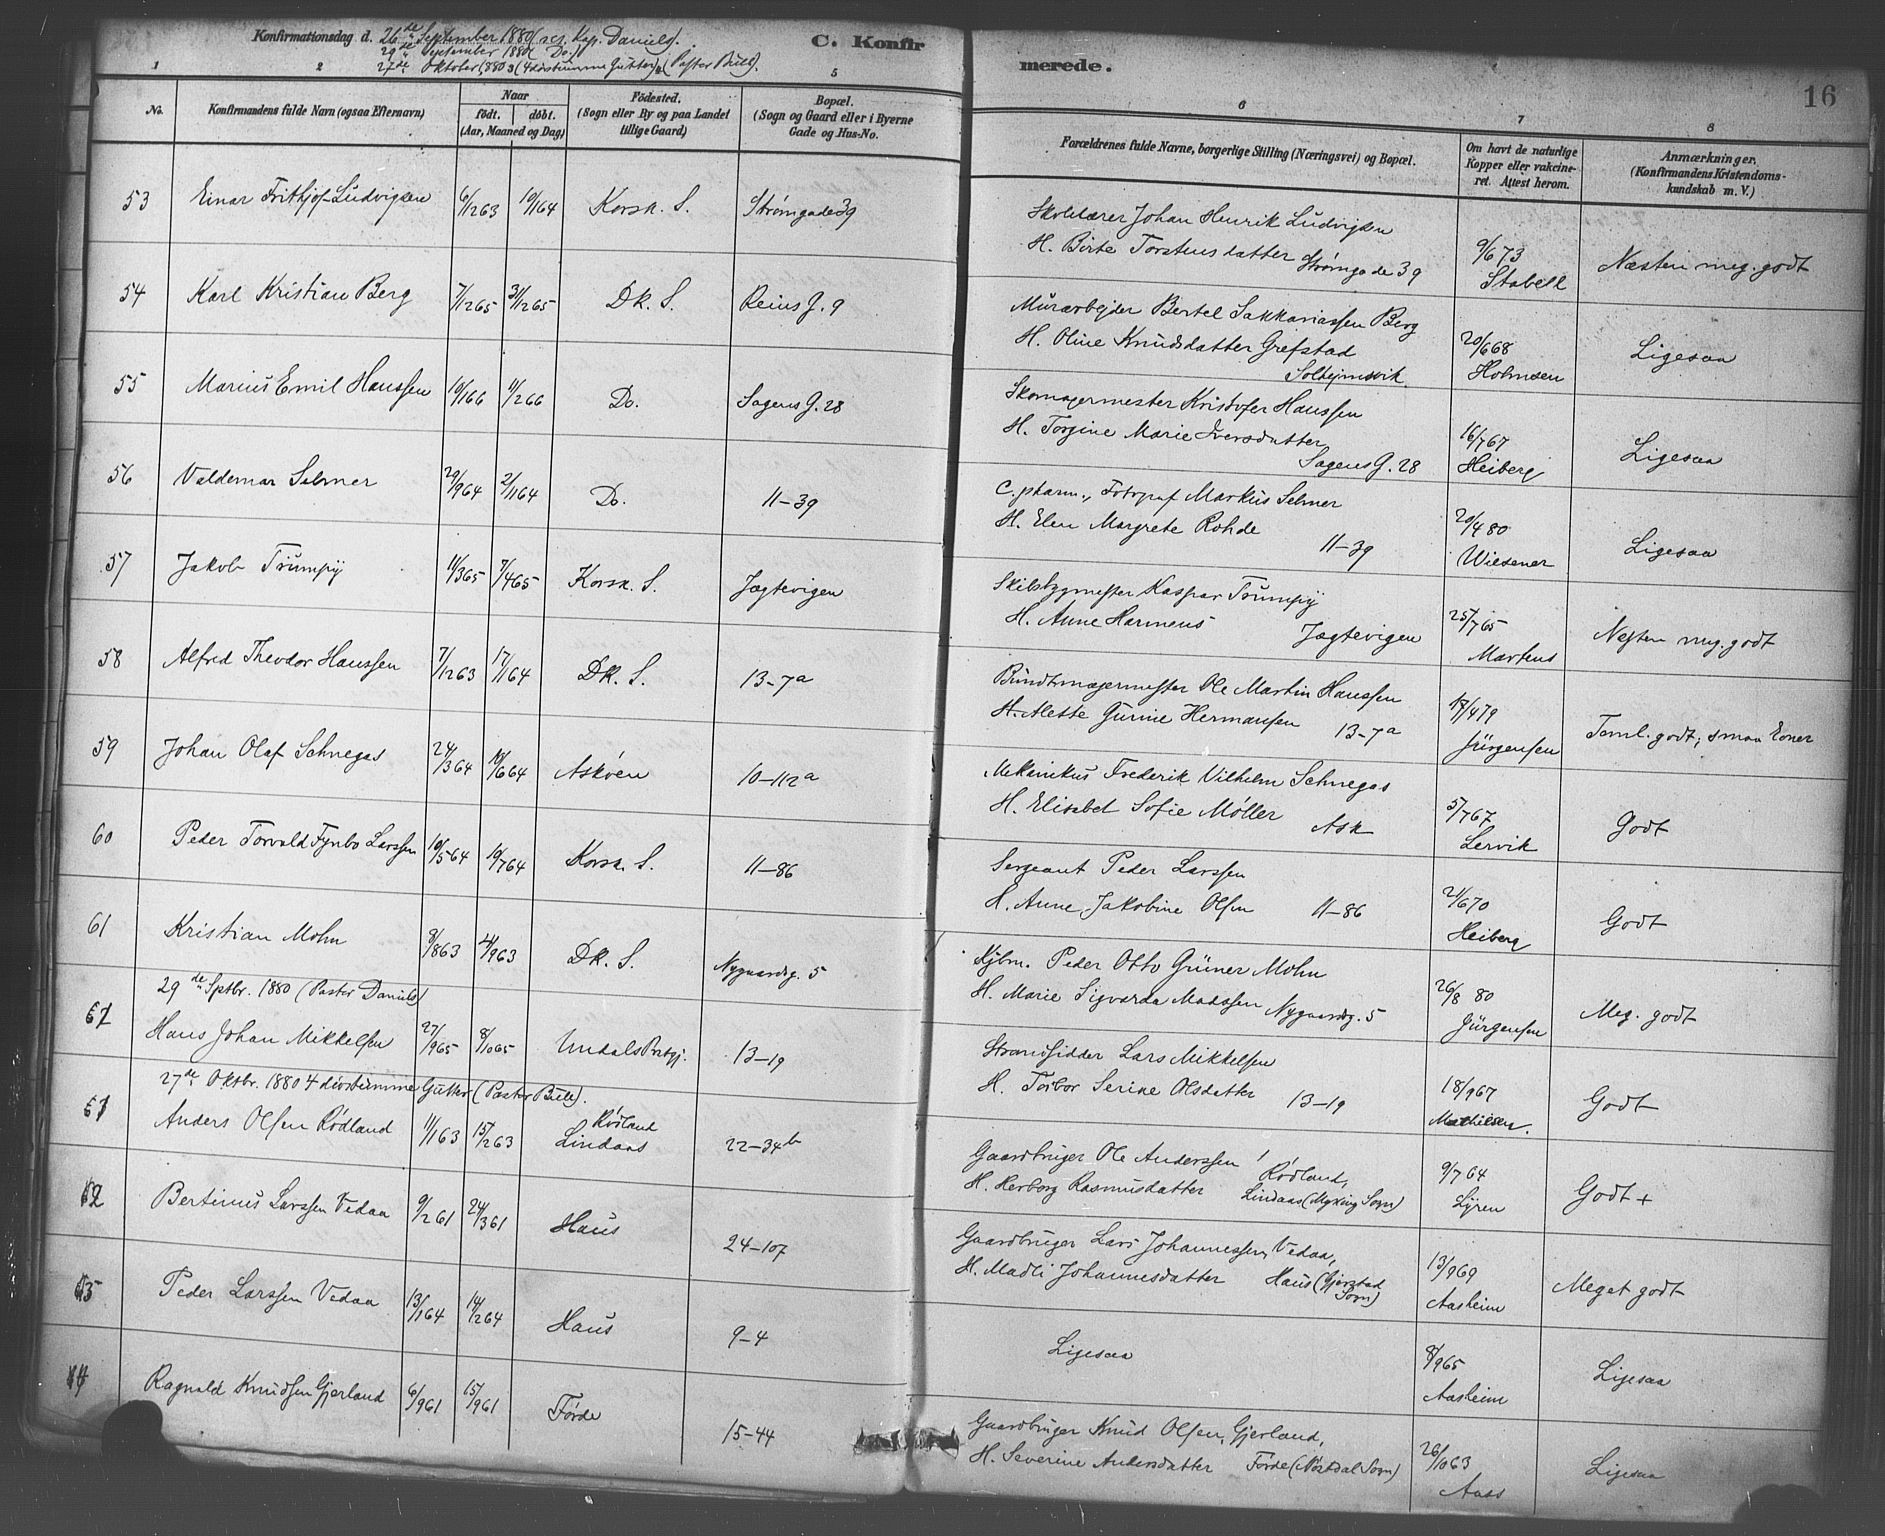 Konfirmationsdag d. 26de September 1880 (res. Kap. Daniels).
29de September 1880 Do.
27de Oktober 1880 (4 døvstumme Gutter) (Pastor Bull).
C. Konfirmerede.
16
1 2 5 6 7 8
No. Konfirmandens fulde Navn (ogsaa Efternavn) Naar født. døbt. (Aar, Maaned og Dag) Fødested. (Sogn eller By og paa Landet tillige Gaard) Bopæl. (Sogn og Gaard eller i Byerne Gade og Hus-No. Forældrenes fulde Navne, borgerlige Stilling (Næringsvei) og Bopæl. Om havt de naturlige Kopper eller vakcineret. Attest herom. Anmærkninger. (Konfirmandens Kristendomskundskab m. V.)
53 Einar Frithjof Ludvigsen 6/12 63 10/1 64 Korsk. S. Strømgade 39 Skolelærer Johan Henrik Ludvigsen 9/6 73 Næsten meg. godt
H. Birte Torstensdatter Strømgade 39 Stabell
54 Karl Kristian Berg 7/12 65 31/12 65 Dk. S. Reins G. 9 Murarbejder Bertel Sakkariassen Berg 20/6 68 Ligesaa
H. Oline Knudsdatter Grefstad Solhejmsvik Holmsen
55 Marius Emil Hanssen 10/1 66 11/2 66 Do. Sagens G. 28 Skomagermester Kristofer Hanssen 16/7 67 Ligesaa
H. Torgine Marie Iversdatter Sagens G. 28 Heiberg
56 Valdemar Selmer 29/9 64 2/11 64 Do. 11-39 C. pharm., Fotograf Markus Selmer 20/4 80 Ligesaa
H. Elen Margrete Rohde 11-39 Wiesener
57 Jakob Trumpy 11/3 65 7/4 65 Korsk. S. Jægtevigen Skibsbygmester Kaspar Trumpy 25/7 65 Nesten meg. godt
H. Anne Harmens Jægtevigen Martens
58 Alfred Theodor Hanssen 7/12 63 17/1 64 Dk. S. 13-7a Bundtmagermester Ole Martin Hanssen 17/4 79 Teml. godt; smaa Evner
H. Alette Gurine Hermansen 13-7a Jürgensen
59 Johan Olaf Schnegas 24/3 64 18/6 64 Askøen 10-112a Mekanikus Frederik Vilhelm Schnegas 5/7 67 Godt
H. Elisabet Sofie Møller Ask Lervik
60 Peder Torvald Fynbo Larssen 10/5 64 10/7 64 Korsk. S. 11-86 Sergeant Peder Larssen 21/6 70 Godt
H. Anne Jakobine Olsen 11-86 Heiberg
61 Kristian Mohn 8/8 63 4/9 63 Dk. S. Nygaardsg. 5 Kjbm. Peder Otto Grüner Mohn 26/8 80 Meg. godt
H. Marie Sigvarda Madssen Nygaardsg. 5 Jürgensen
29de Sptbr. 1880 (Pastor Daniels)
Hans Johan Mikkelsen 27/9 65 8/10 65 Undals Prstgj. 13-19 Strandsidder Lars Mikkelsen 18/9 67 Godt
H. Torbor Serine Olsdatter 13-19 Mathiesen.
27de Oktbr. 1880 4 døvstumme Gutter (Pastor Bull).
Anders Olsen Rødland 11/1 63 15/2 63 Rødland Lindaas 22-34b Gaardbruger Ole Anderssen Rødland, 9/7 64 Godt +
H. Herborg Rasmusdatter Lindaas (Myking Sogn) Lyren
Bertinus Larssen Vedaa 9/2 61 24/3 61 Haus 24-107 Gaardbruger Lars Johannessen Vedaa, 13/9 69 Meget godt
H. Madli Johannesdatter Haus (Gjerstad Sogn) Aasheim
Peder Larssen Vedaa 13/1 64 14/2 64 Haus 9-4 Ligesaa 8/9 65 Ligesaa
Aasheim
Ragnald Knudsen Gjerland 6/9 61 15/9 61 Førde 15-44 Gaardbruger Knud Olsen Gjerland, 26/10 63 Ligesaa
H. Severine Andersdatter Førde (Nøstdal Sogn) Aass